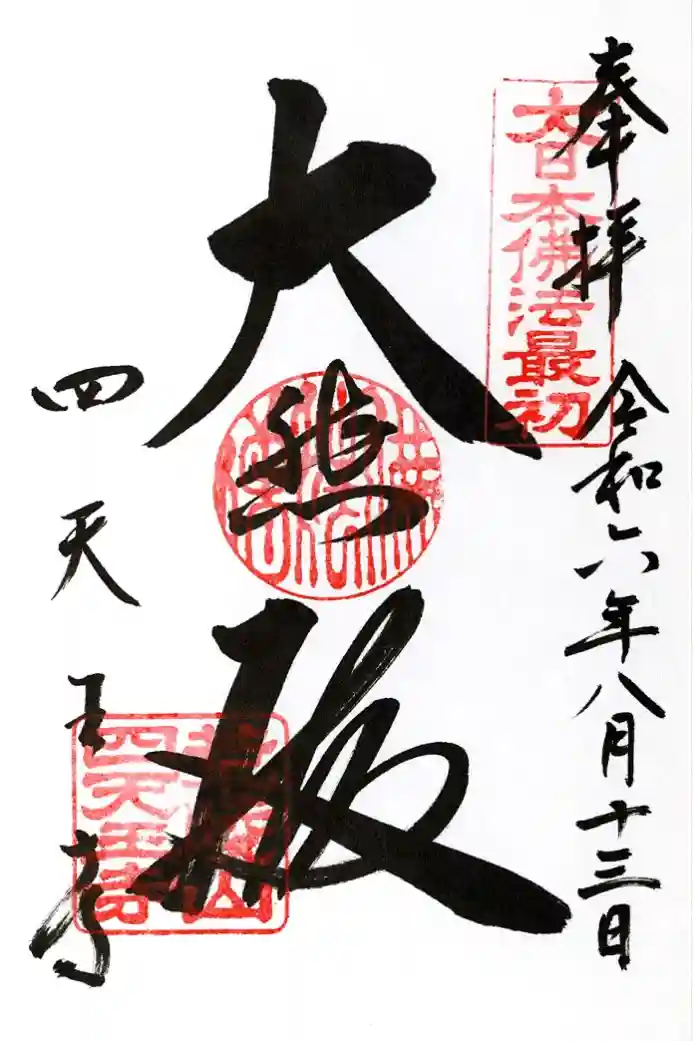 奉拝
令和六年八月十三日
大日本佛法最初
大悲殿
四天王寺
荒陵山
四天王寺